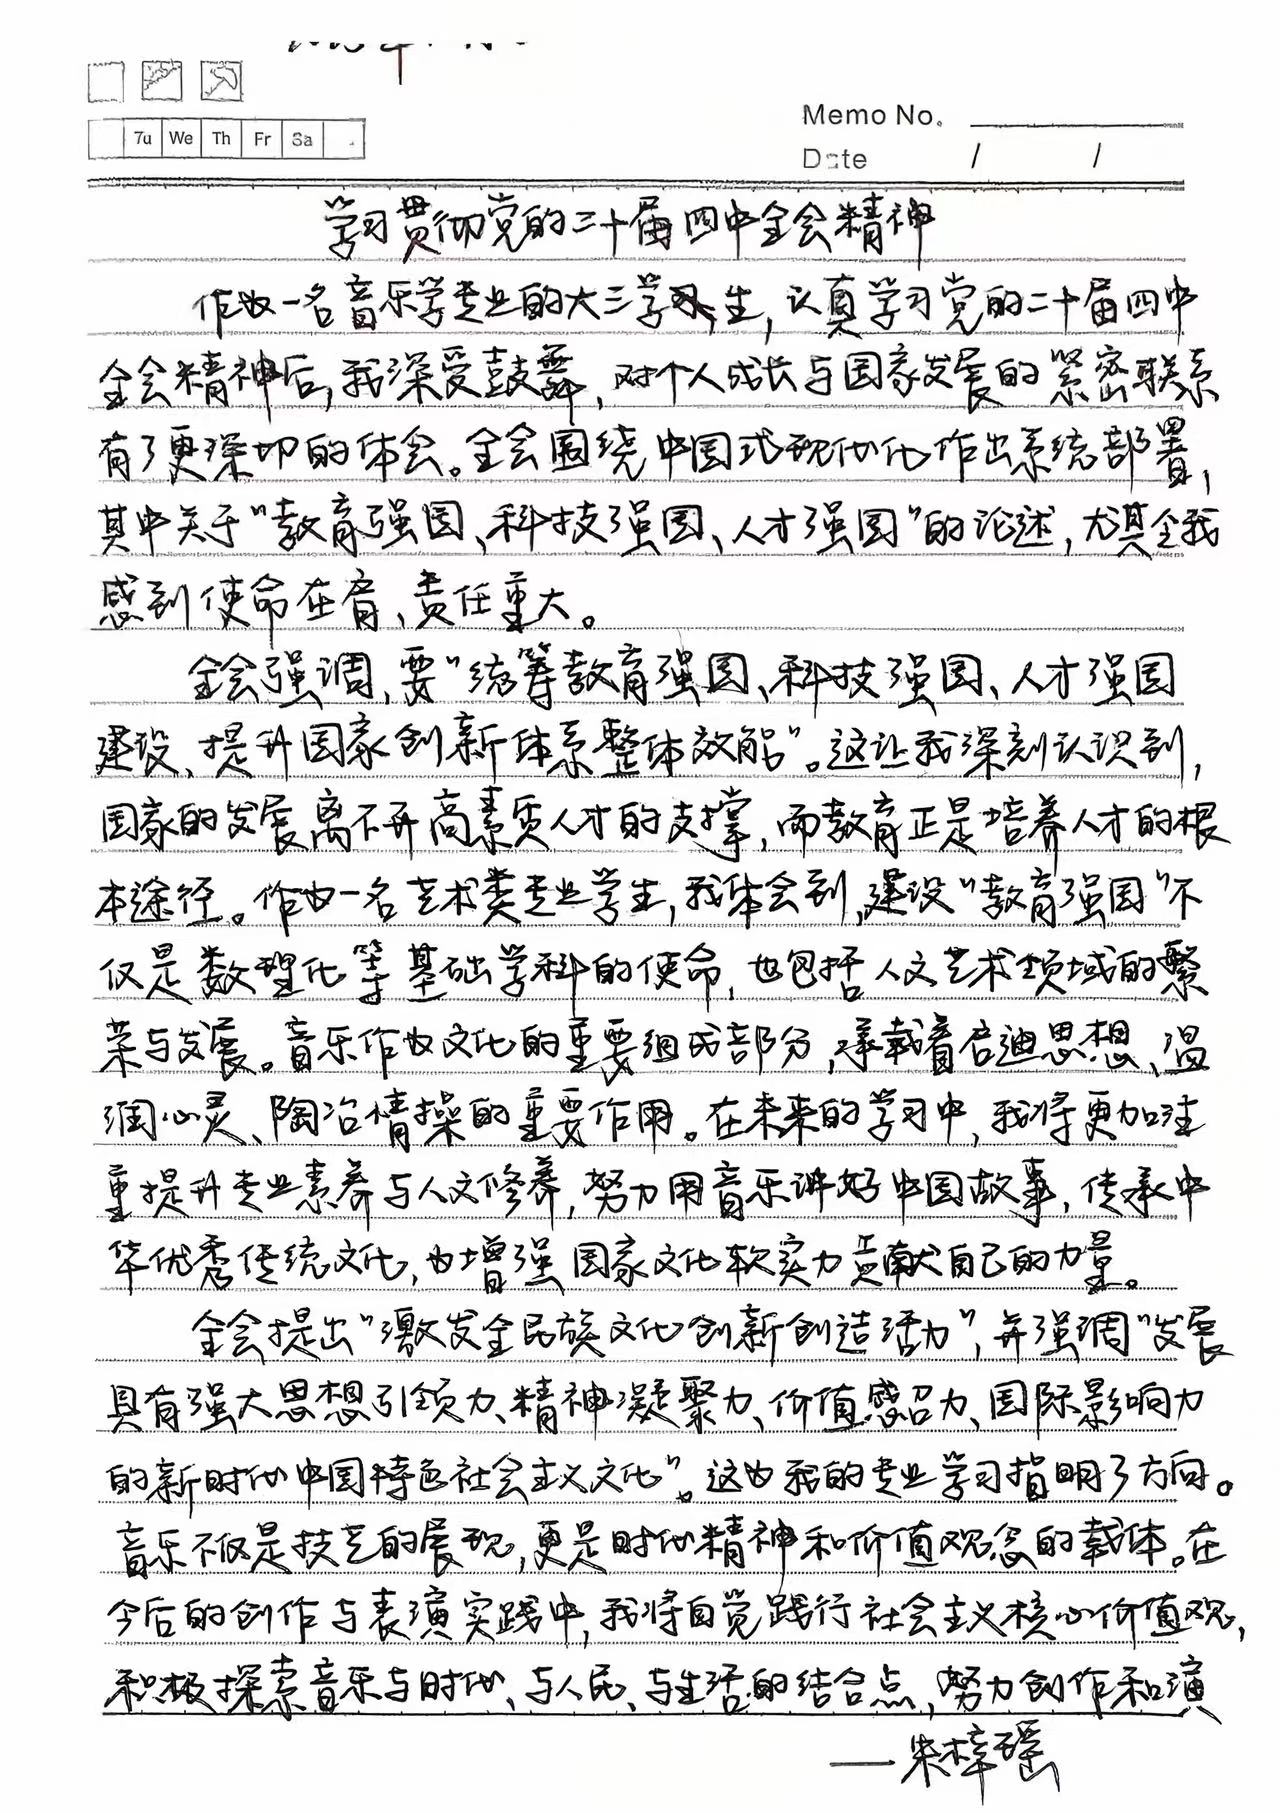 7u We Th Fr Sa
Memo No.
Date / /
学习贯彻党的二十届四中全会精神
作为一名音乐学专业的大三学生，认真学习党的二十届四中
全会精神后，我深受鼓舞，对个人成长与国家发展的紧密联系
有了更深切的体会。全会围绕中国式现代化作出系统部署，
其中关于“教育强国、科技强国、人才强国”的论述，尤其令我
感到使命在肩、责任重大。
全会强调，要“统筹教育强国、科技强国、人才强国
建设，提升国家创新体系整体效能”。这让我深刻认识到，
国家的发展离不开高素质人才的支撑，而教育正是培养人才的根
本途径。作为一名艺术类专业学生，我体会到，建设“教育强国”不
仅是数理化等基础学科的使命，也包括人文艺术领域的繁
荣与发展。音乐作为文化的重要组成部分，承载着启迪思想、温
润心灵、陶冶情操的重要作用。在未来的学习中，我将更加注
重提升专业素养与人文修养，努力用音乐讲好中国故事，传承中
华优秀传统文化，为增强国家文化软实力贡献自己的力量。
全会提出“激发全民族文化创新创造活力”，并强调“发展
具有强大思想引领力、精神凝聚力、价值感召力、国际影响力
的新时代中国特色社会主义文化”。这为我的专业学习指明了方向。
音乐不仅是技艺的展现，更是时代精神和价值观念的载体。在
今后的创作与表演实践中，我将自觉践行社会主义核心价值观，
积极探索音乐与时代、与人民、与生活的结合点，努力创作和演
——朱梓瑶